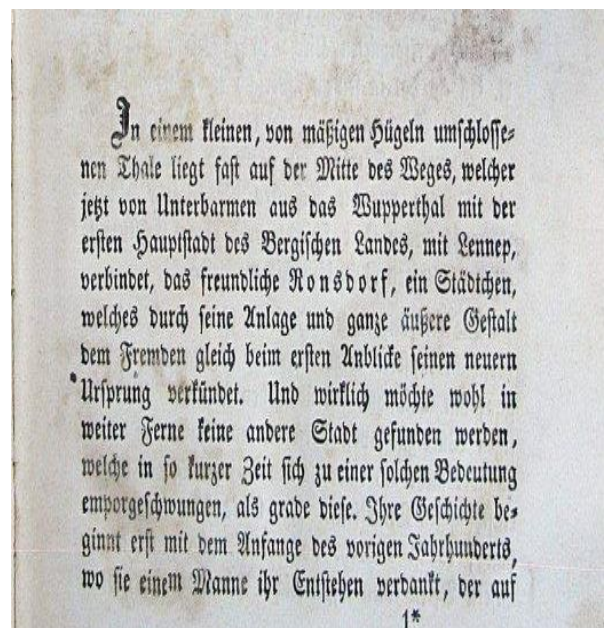 In einem kleinen, von mäßigen Hügeln umschlosse-
nen Thale liegt fast auf der Mitte des Weges, welcher
jetzt von Unterbarmen aus das Wupperthal mit der
ersten Hauptstadt des Bergischen Landes, mit Lennep,
verbindet, das freundliche Ronsdorf, ein Städtchen,
welches durch seine Anlage und ganze äußere Gestalt
dem Fremden gleich beim ersten Anblicke seinen neuern
Ursprung verkündet. Und wirklich möchte wohl in
weiter Ferne keine andere Stadt gefunden werden,
welche in so kurzer Zeit sich zu einer solchen Bedeutung
emporgeschwungen, als grade diese. Ihre Geschichte be-
ginnt erst mit dem Anfange des vorigen Jahrhunderts,
wo sie einem Manne ihr Entstehen verdankt, der auf
1*